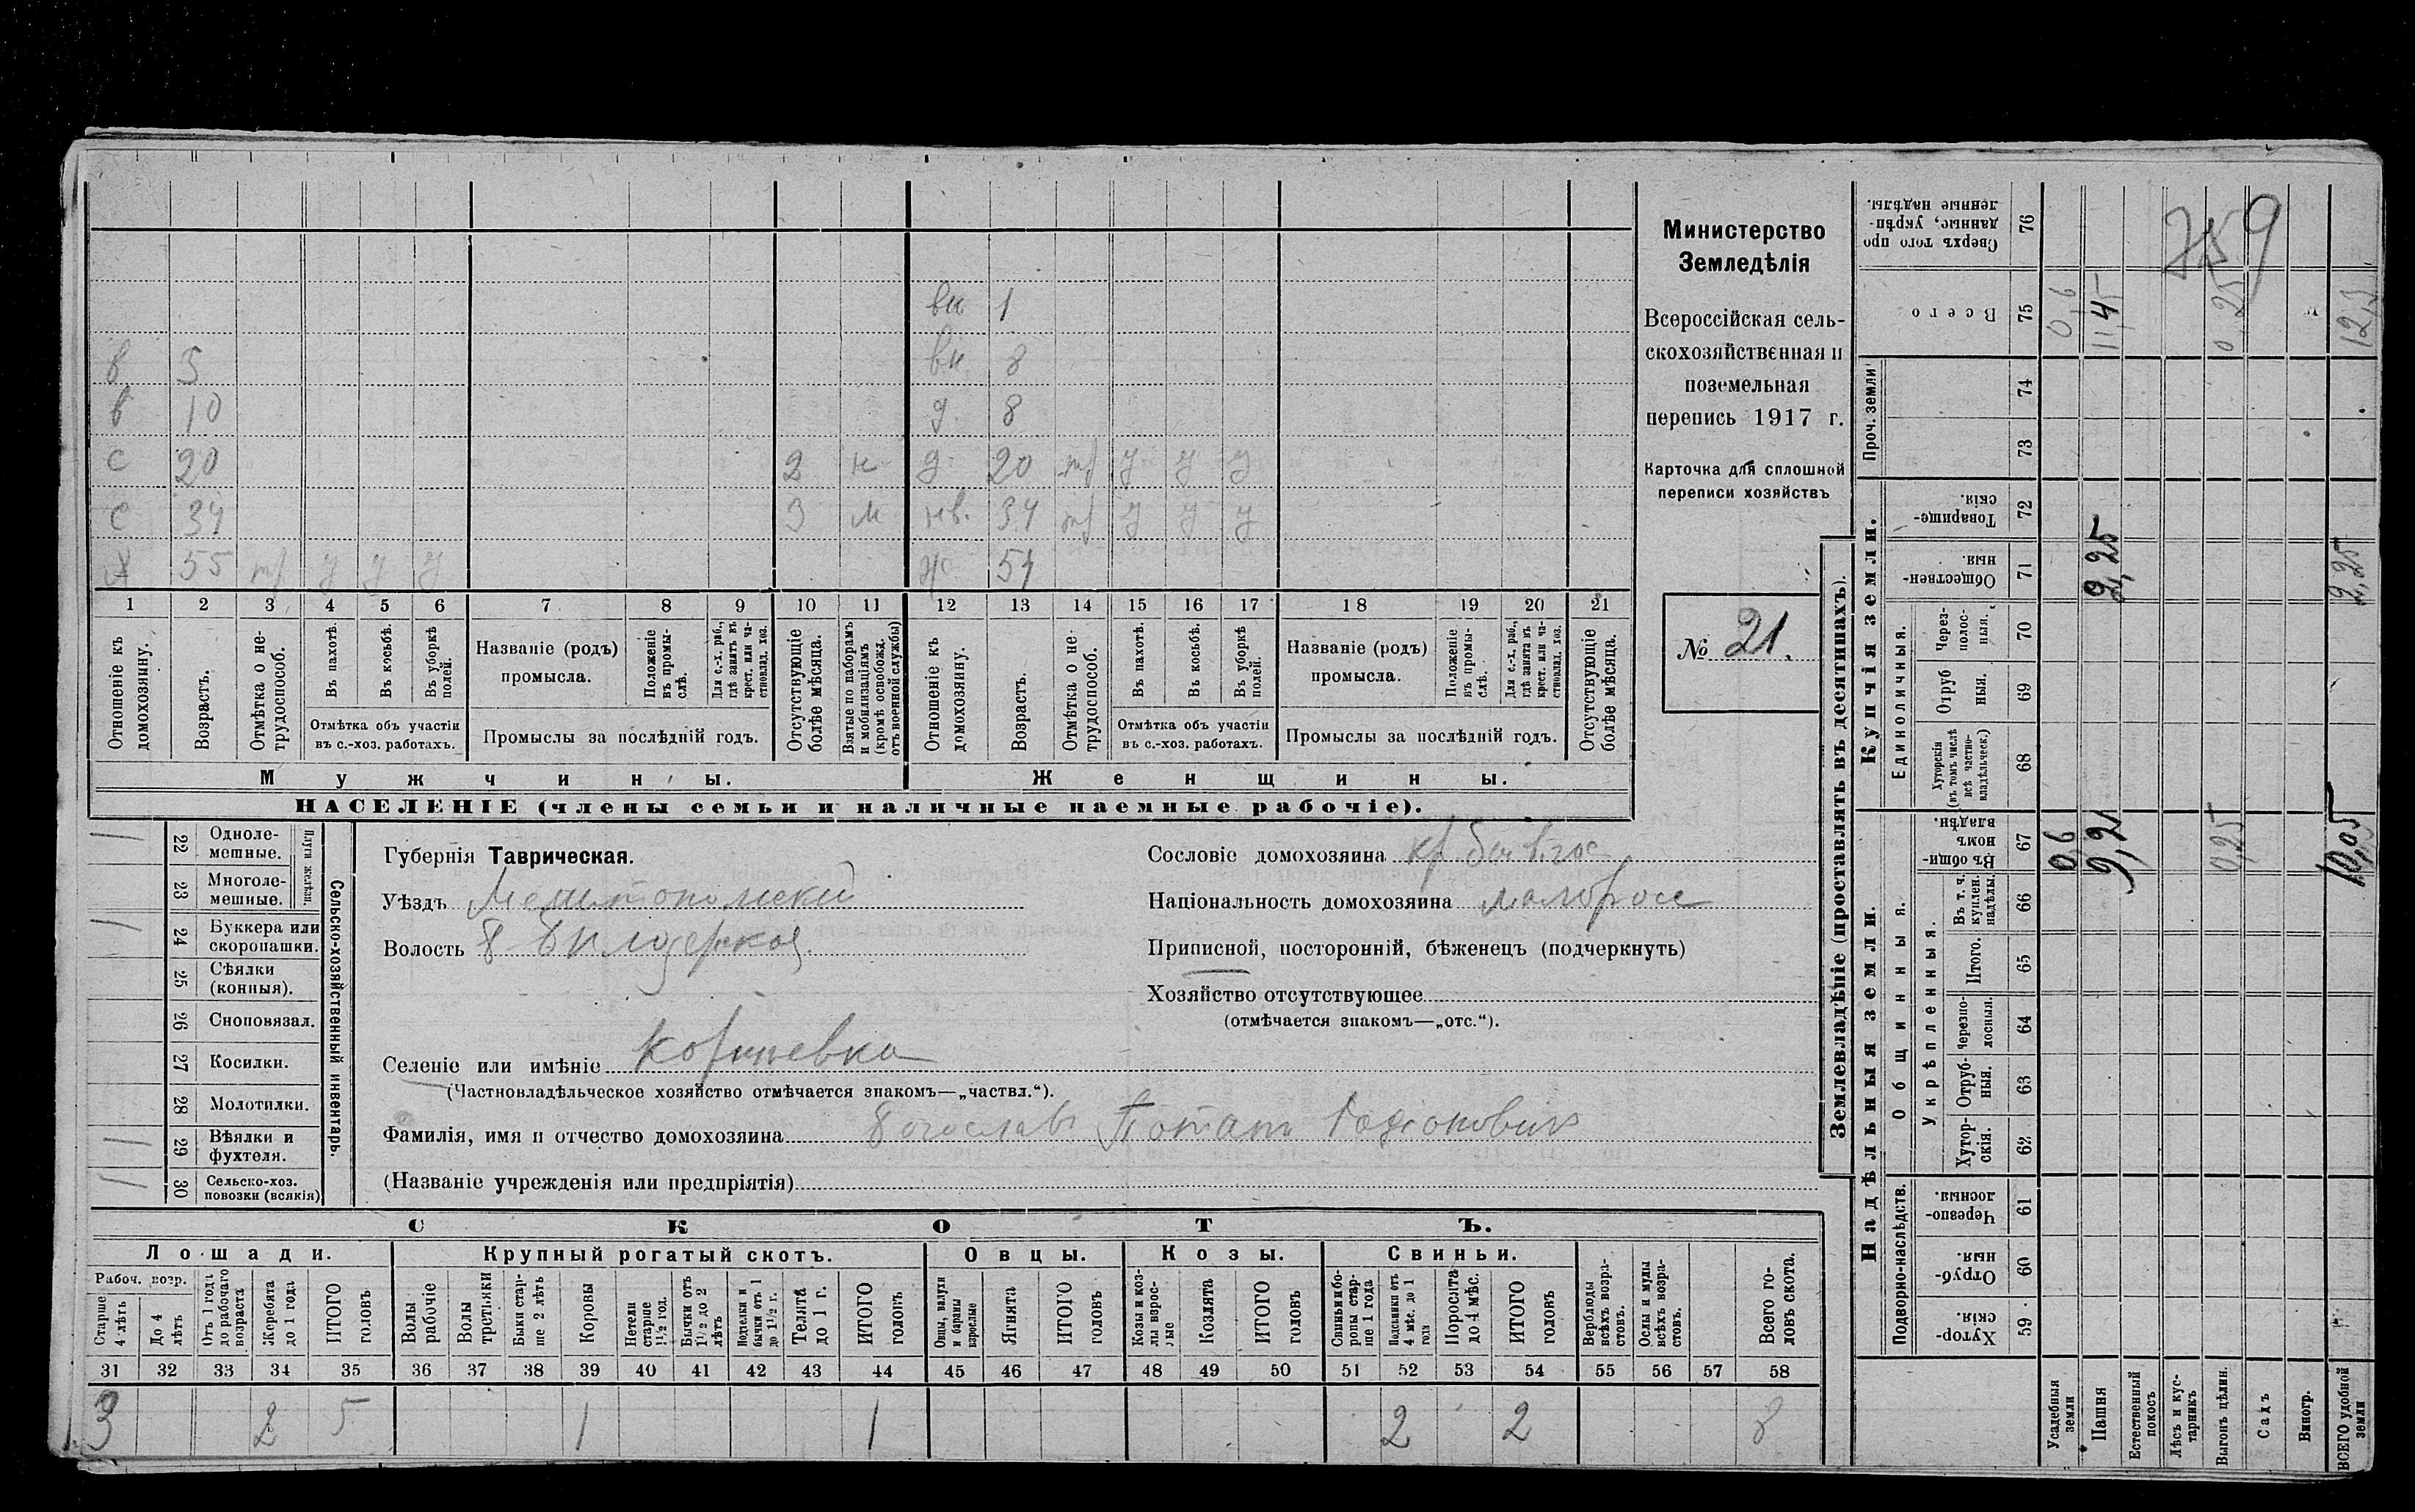 вн 1
в 5 вн 8
в 10 д 8
с 20 2 н д 20 тр у у у
с 34 3 м нв. 34 тр у у у
х 55 тр у у у ж 51
1 2 3 4 5 6 7 8 9 10 11 12 13 14 15 16 17 18 19 20 21
Отношеніе къ домохозяину.
Возрастъ.
Отмѣтка о нетрудоспособ.
Въ пахотѣ.
Въ косьбѣ.
Въ уборкѣ полей.
Отмѣтка объ участіи
въ с.-хоз. работахъ.
Названіе (родъ)
промысла.
Положеніе въ промыслѣ.
Для с.-х. раб., гдѣ занятъ въ крест. или частновлад. хоз.
Промыслы за послѣдній годъ.
Отсутствующіе болѣе мѣсяца.
Взятые по наборамъ и мобилизаціямъ (кромѣ освобожд. отъ военной службы)
Отношеніе къ домохозяину.
Возрастъ.
Отмѣтка о нетрудоспособ.
Въ пахотѣ.
Въ косьбѣ.
Въ уборкѣ полей.
Отмѣтка объ участіи
въ с.-хоз. работахъ.
Названіе (родъ)
промысла.
Положеніе въ промыслѣ.
Для с.-х. раб., гдѣ занята въ крест. или частновлад. хоз.
Промыслы за послѣдній годъ.
Отсутствующіе болѣе мѣсяца.
Мужчины. Женщины.
НАСЕЛЕНІЕ (члены семьи и наличные наемные рабочіе).
Министерство
Земледѣлія
Всероссійская сель-
скохозяйственная и
поземельная
перепись 1917 г.
Карточка для сплошной
переписи хозяйствъ
№ 21.
22 Одноле-
мешные.
23 Многоле-
мешные.
Плуги желѣзн.
24 Буккера или
скоропашки.
25 Сѣялки
(конныя).
26 Сноповязал.
27 Косилки.
28 Молотилки.
29 Вѣялки и
фухтеля.
30 Сельско-хоз.
повозки (всякія)
Сельско-хозяйственный инвентарь.
Губернія Таврическая.
Уѣздъ Мелитопольский
Волость Б Билозерской
Селеніе или имѣніе
(Частновладѣльческое хозяйство отмѣчается знакомъ—„частвл.“).
Фамилія, имя и отчество домохозяина Богослав Потап Родионович
(Названіе учрежденія или предпріятія)
Сословіе домохозяина кр.
Національность домохозяина малоросс
Приписной, посторонній, бѣженецъ (подчеркнуть)
Хозяйство отсутствующее
(отмѣчается знакомъ—„отс.“).
СКОТЪ.
Лошади. Крупный рогатый скотъ. Овцы. Козы. Свиньи.
Рабоч. возр.
Старше 4 лѣтъ
До 4 лѣтъ
Отъ 1 года до рабочаго возраста
Жеребята до 1 года
ИТОГО головъ
Волы рабочіе
Волы третьяки
Быки старше 2 лѣтъ
Коровы
Нетели старше 1½ год.
Бычки отъ 1½ до 2 лѣтъ
Нетели и бычки отъ 1 до 1½ г.
Телята до 1 г.
ИТОГО головъ
Овцы, валухи и бараны взрослые
Ягнята
ИТОГО головъ
Козы и козлы взрослые
Козлята
ИТОГО головъ
Свиньи и боровы старше 1 года
Подсвинки отъ 4 мѣс. до 1 года
Поросята до 4 мѣс.
ИТОГО головъ
Верблюды всѣхъ возрастовъ.
Ослы и мулы всѣхъ возрастовъ.
Всего головъ скота.
31 32 33 34 35 36 37 38 39 40 41 42 43 44 45 46 47 48 49 50 51 52 53 54 55 56 57 58
3 2 5 1 1 2 2 8
Землевладѣніе (проставлять въ десятинахъ).
Купчія земли.
Надѣльныя земли.
Сверхъ того проданные, укрѣпленные надѣлы. 76
Всего 75 0,6 11,45 0,25 12,3
759
Проч. земли 74
73
Товарищескія. 72
Общественныя. 71 2,25 2,25
Единоличныя.
Черезполосныя. 70
Отрубныя. 69
Хуторскія (въ томъ числѣ всѣ частновладѣльческ.) 68
Общинныя.
Въ общиномъ владѣн. 67 0,6 9,2 0,25 10,05
Укрѣпленныя.
Въ т. ч. куплен. надѣлы. 66
Итого. 65
Черезполосныя. 64
Отрубныя. 63
Хуторскія. 62
Подворно-наслѣдств.
Черезполосныя. 61
Отрубныя. 60
Хуторскія. 59
Усадебныя земли
Пашня
Естественный покосъ
Лѣсъ и кустарникъ
Выгонъ цѣлин.
Садъ
Виногр.
ВСЕГО удобной земли